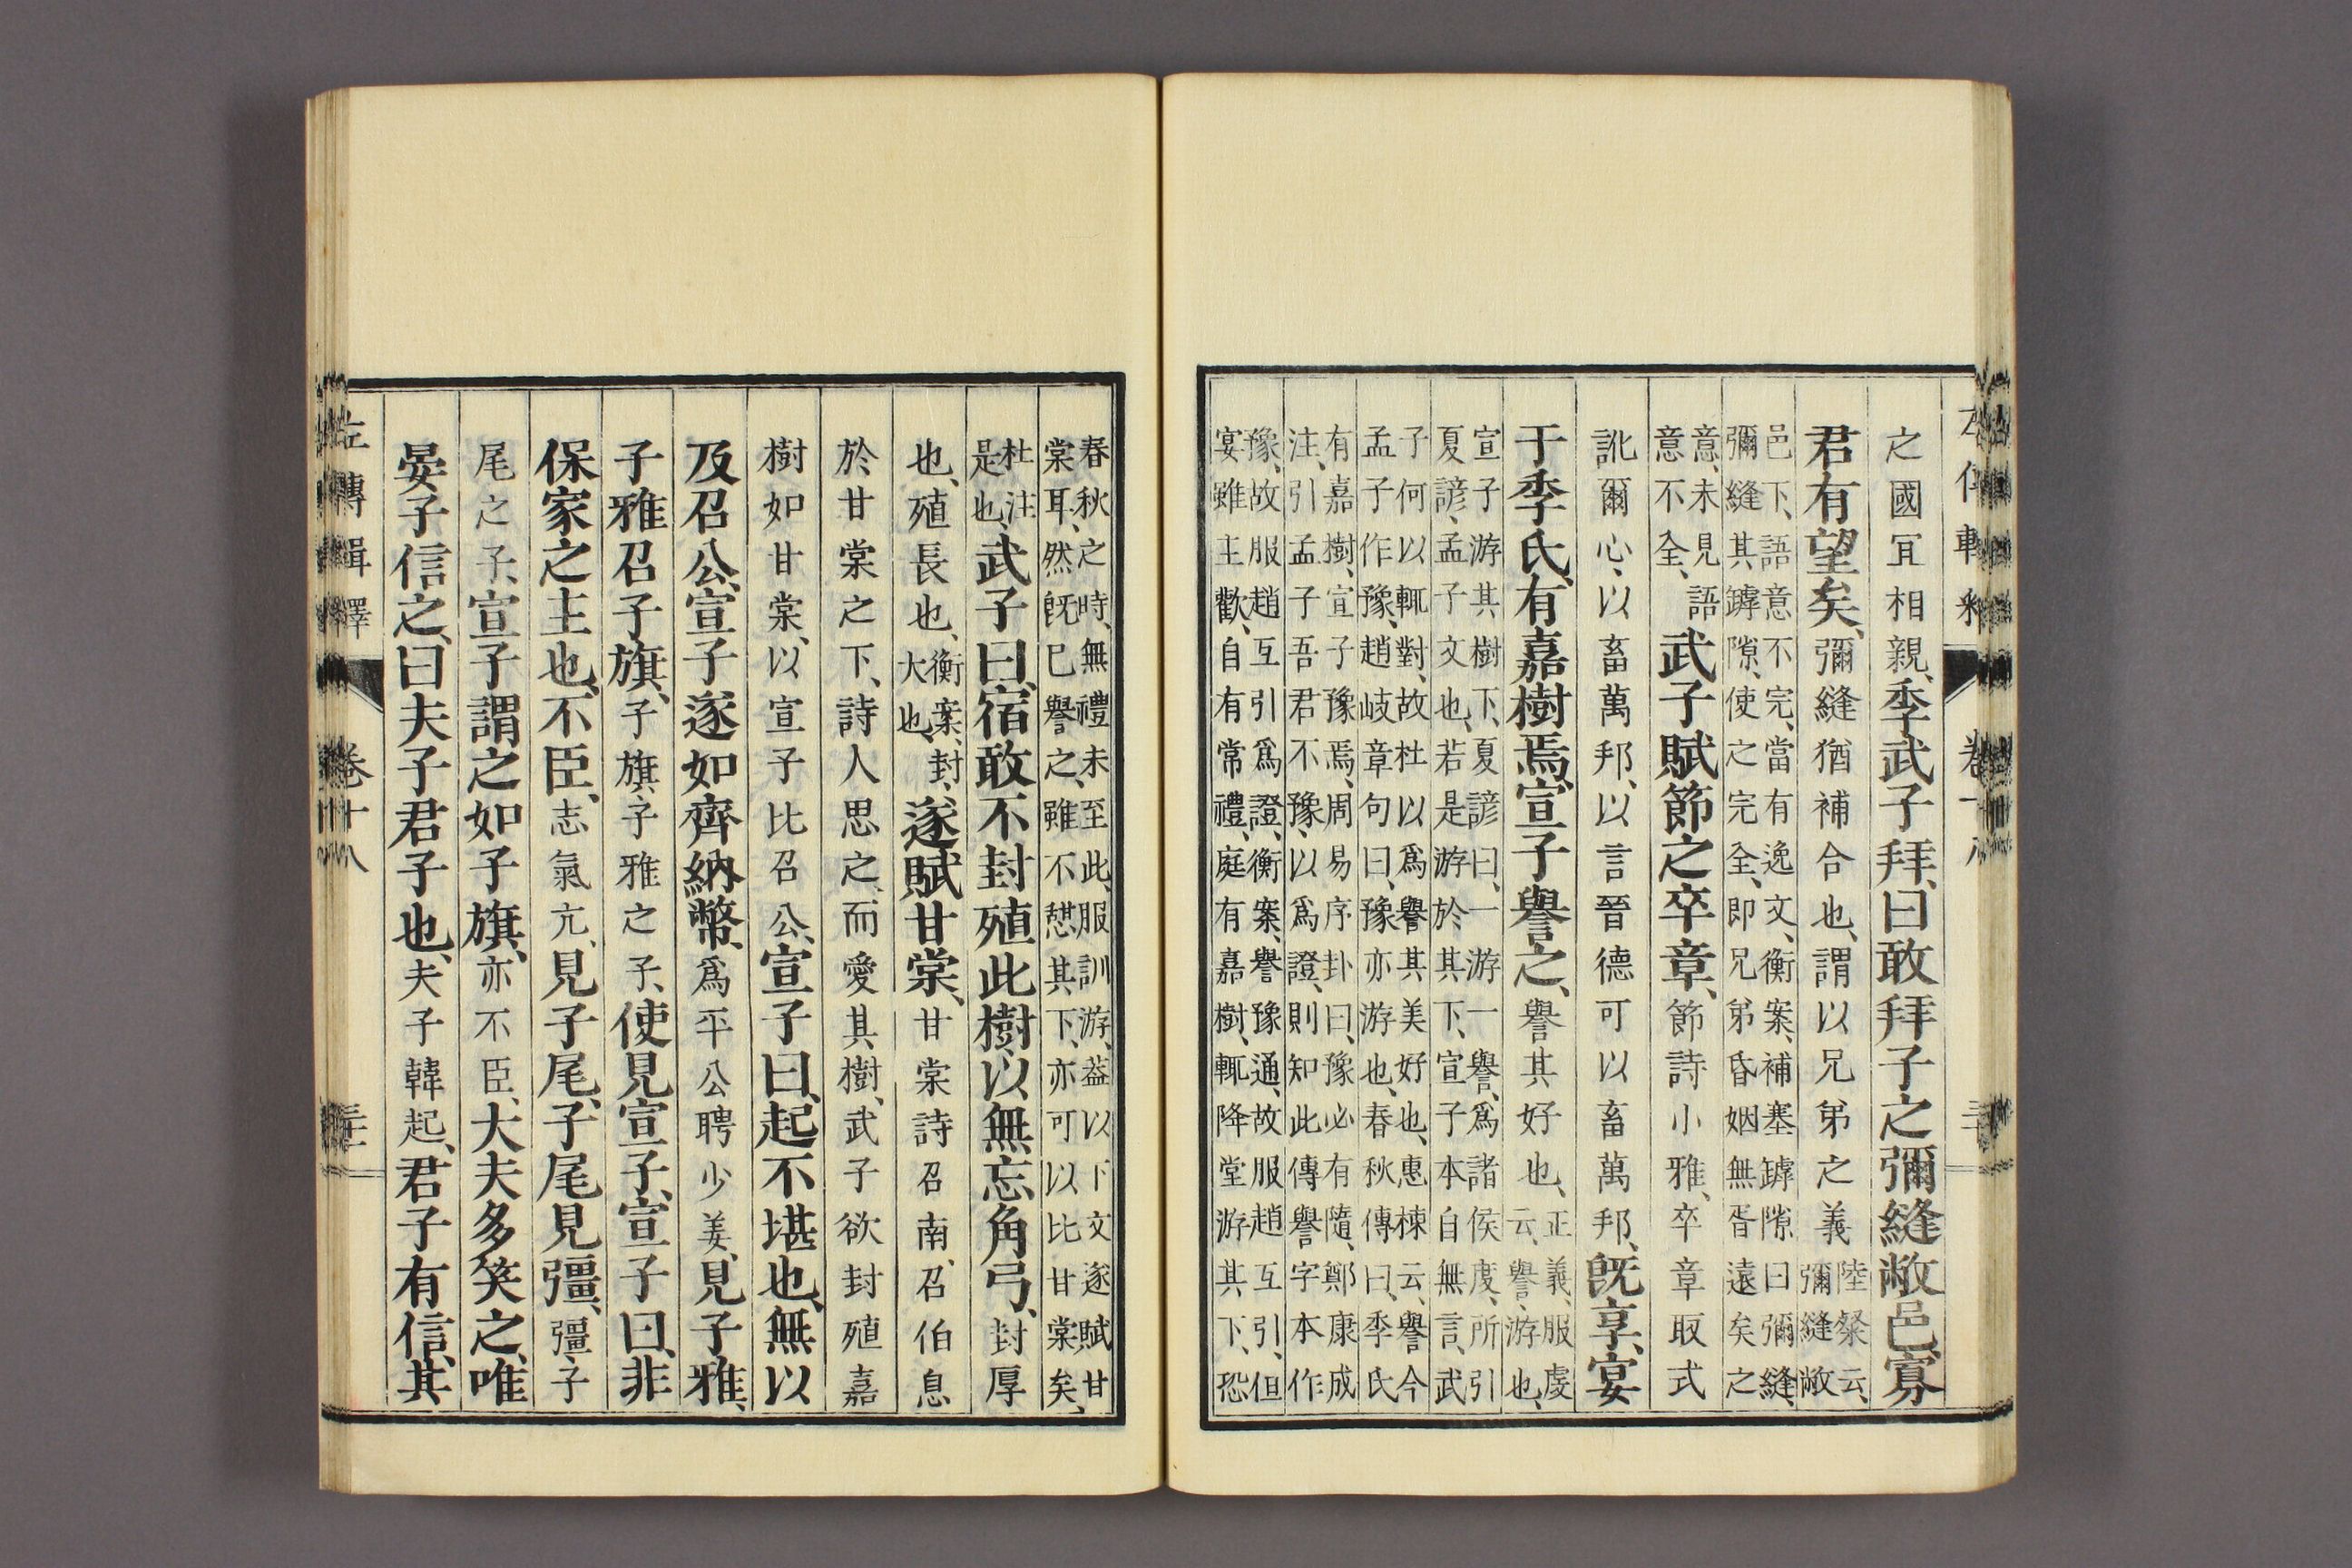 左傳輯釋 卷十八
之國宜相親、季武子拜、曰敢拜子之彌縫敝邑、寡
君有望矣、彌縫猶補合也、謂以兄弟之義陸粲云、彌縫敝
邑下、語意不完、當有逸文、衡案、補塞罅隙曰彌縫、
彌縫其罅隙、使之完全、即兄弟昏姻無胥遠矣之
意、未見語意不全、武子賦節之卒章、節詩小雅、卒章取式
訛爾心、以畜萬邦、以言晉德可以畜萬邦、旣享、宴
于季氏、有嘉樹焉、宣子譽之、譽其好也、正義、服虔云、譽、游也、
宣子游其樹下、夏諺曰、一游一譽、爲諸侯度、所引
夏諺、孟子文也、若是游於其下、宣子本自無言、武
子何以輒對、故杜以爲譽其美好也、惠棟云、譽今
孟子作豫、趙岐章句曰、豫亦游也、春秋傳曰、季氏
有嘉樹、宣子豫焉、周易序卦曰、豫必有隨、鄭康成
注、引孟子吾君不豫、以爲證、則知此傳譽字本作
豫、故服趙互引爲證、衡案、譽豫通、故服趙互引、但
宴雖主歡、自有常禮、庭有嘉樹、輒降堂游其下、恐
春秋之時、無禮未至此、服訓游、葢以下文遂賦甘
棠耳、然旣已譽之、雖不憩其下、亦可以比甘棠矣、
杜注是也、武子曰、宿敢不封殖此樹、以無忘角弓、封厚
也、殖長也、衡案、封、大也、遂賦甘棠、甘棠詩召南、召伯息
於甘棠之下、詩人思之、而愛其樹、武子欲封殖嘉
樹如甘棠、以宣子比召公、宣子曰、起不堪也、無以
及召公、宣子遂如齊納幣、爲平公聘少姜、見子雅、
子雅召子旗、子旗、子雅之子、使見宣子、宣子曰、非
保家之主也、不臣、志氣亢、見子尾、子尾見彊、彊、子
尾之子、宣子謂之如子旗、亦不臣、大夫多笑之、唯
晏子信之、曰夫子君子也、夫子韓起、君子有信、其
左傳輯釋 卷十八